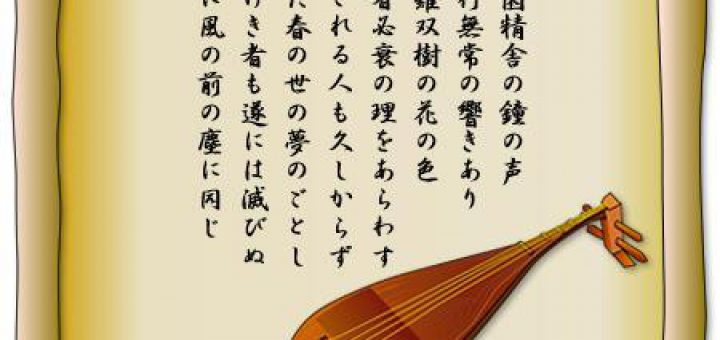 園精舎の鐘の声
行無常の響きあり
羅双樹の花の色
者必衰の理をあらわす
れる人も久しからず
春の世の夢のごとし
けき者も遂には滅びぬ
に風の前の塵に同じ